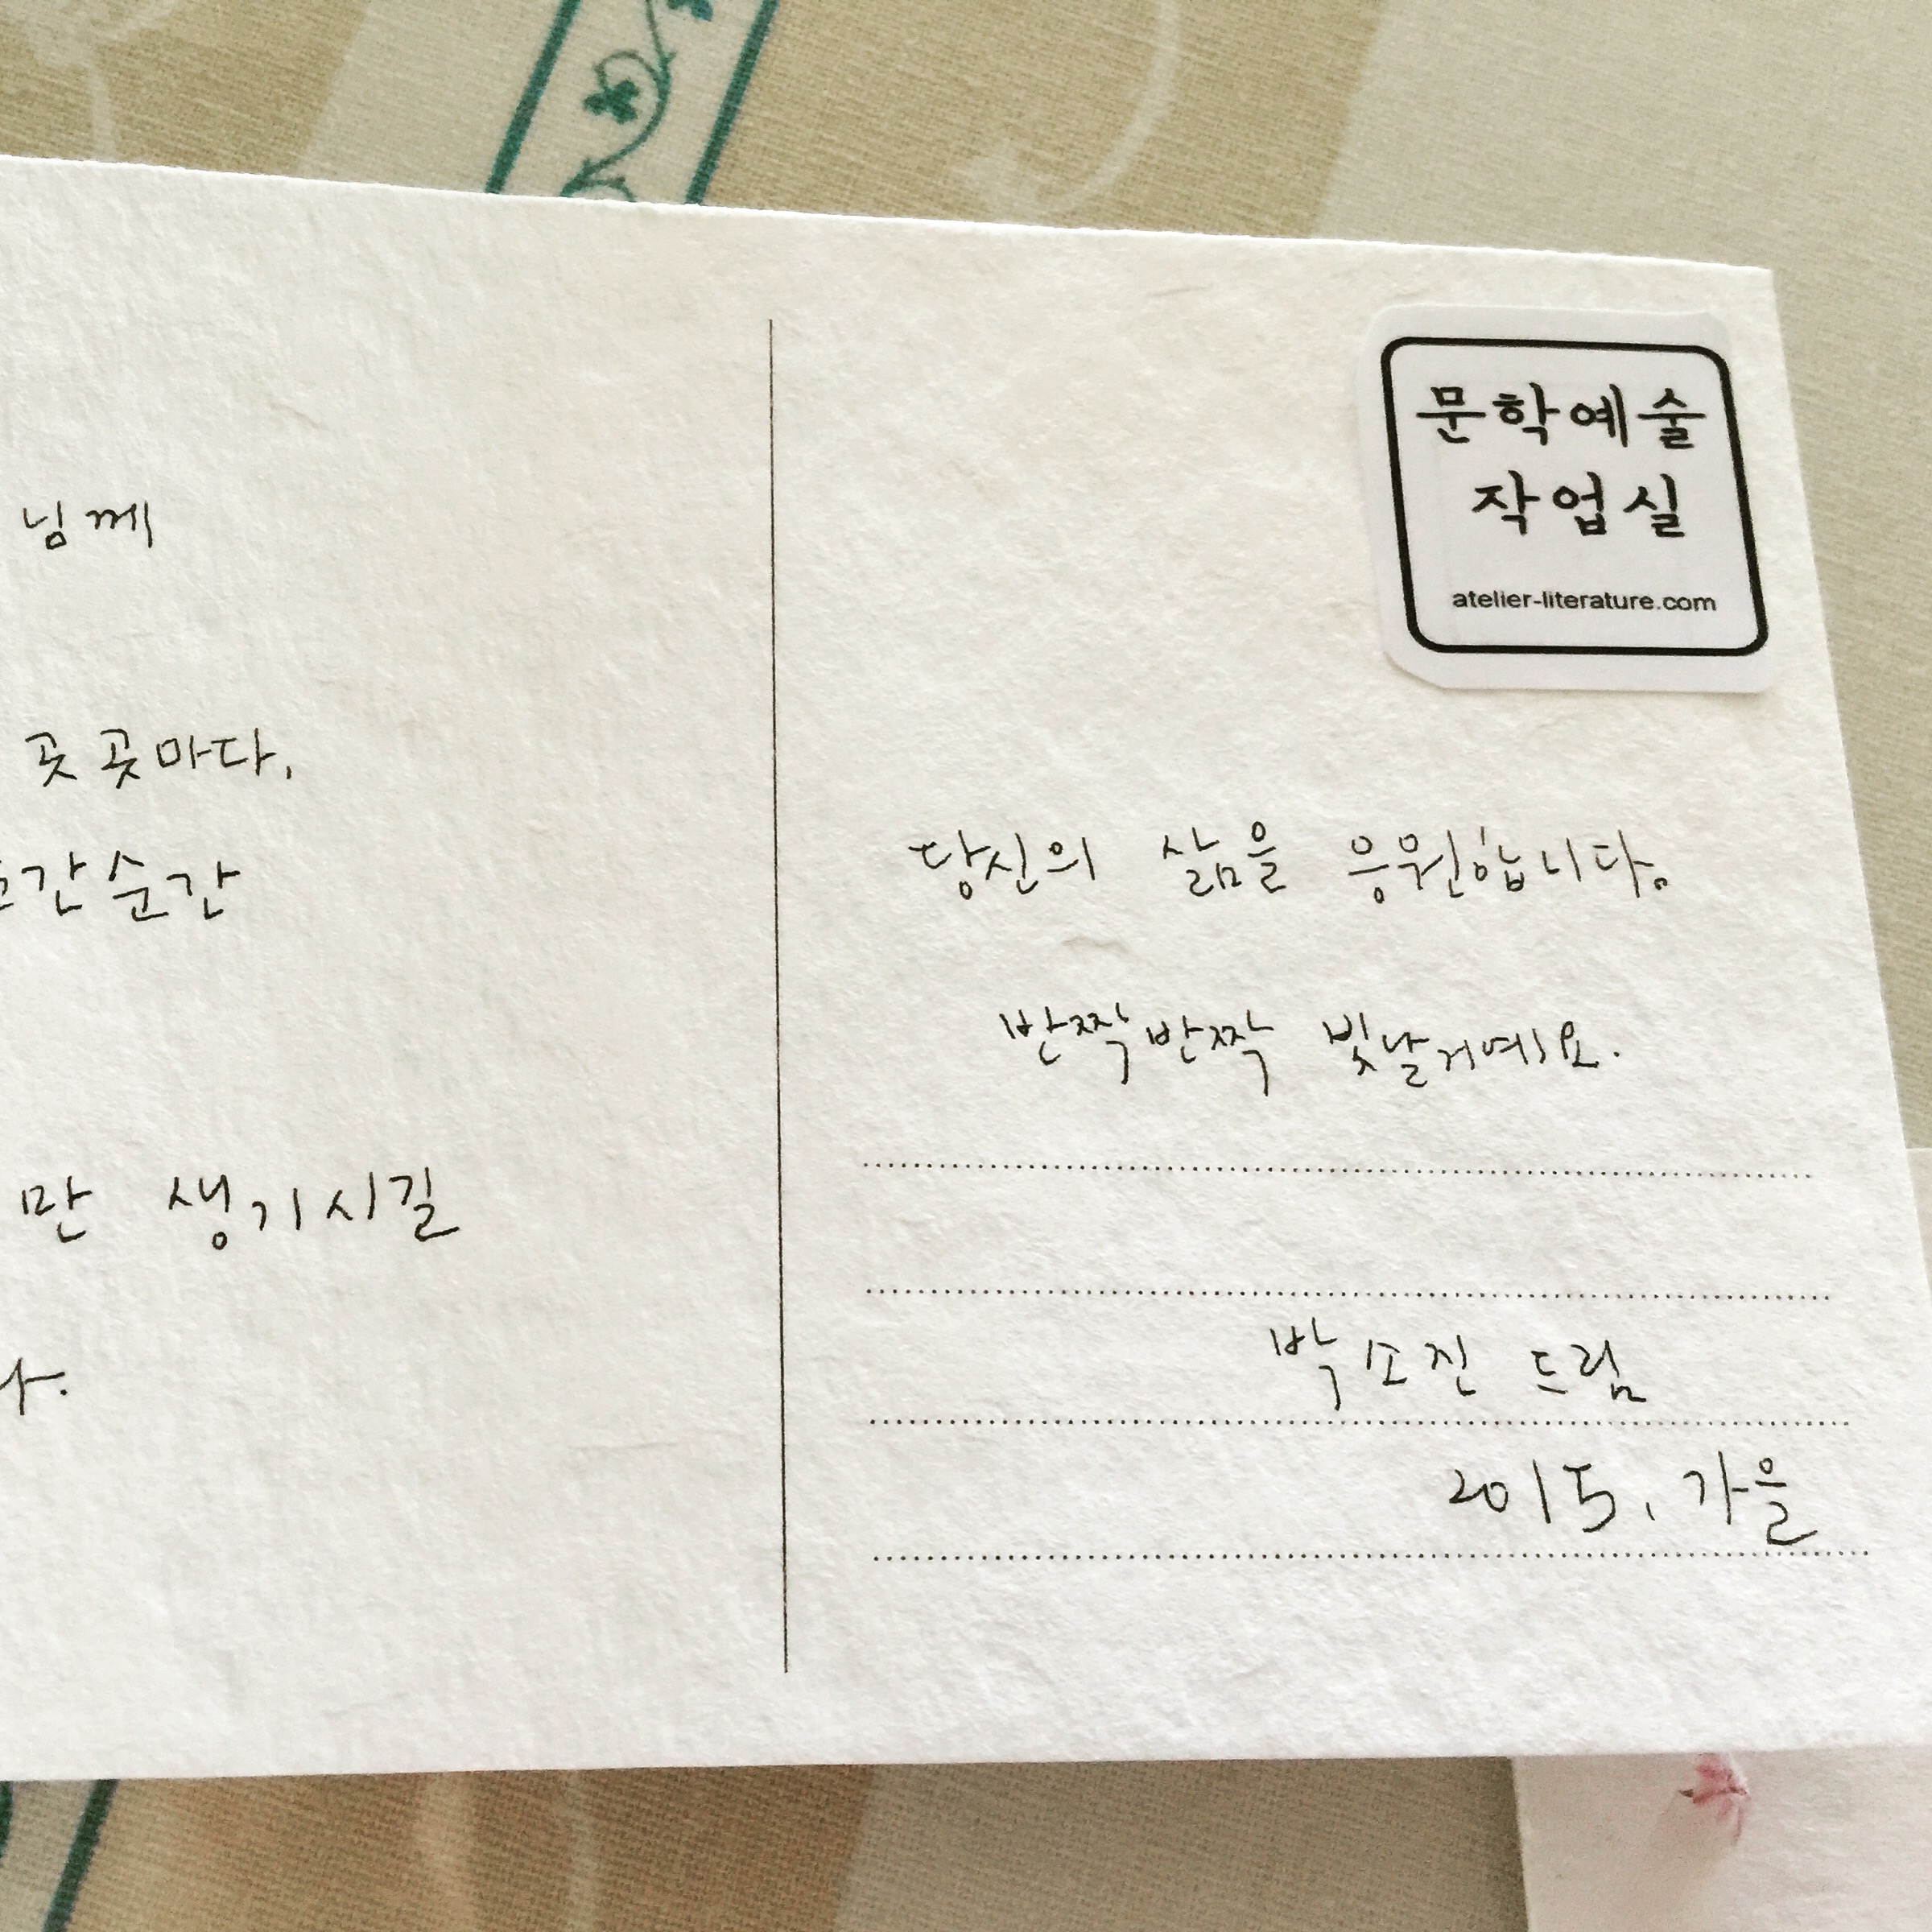 님께
곳곳마다,
순간순간
만 생기시길
다.
문학예술
작업실
atelier-literature.com
당신의 삶을 응원합니다.
반짝반짝 빛날거예요.
박소진 드림
2015, 가을